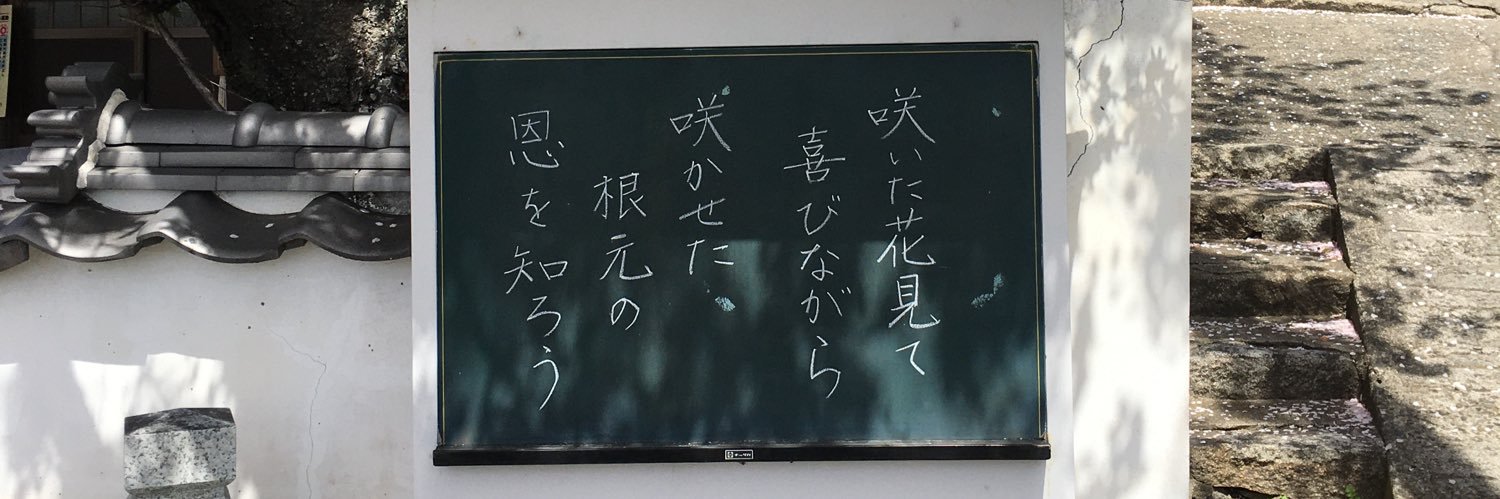 咲いた花見て
喜びながら
咲かせた
根元の
恩を知ろう